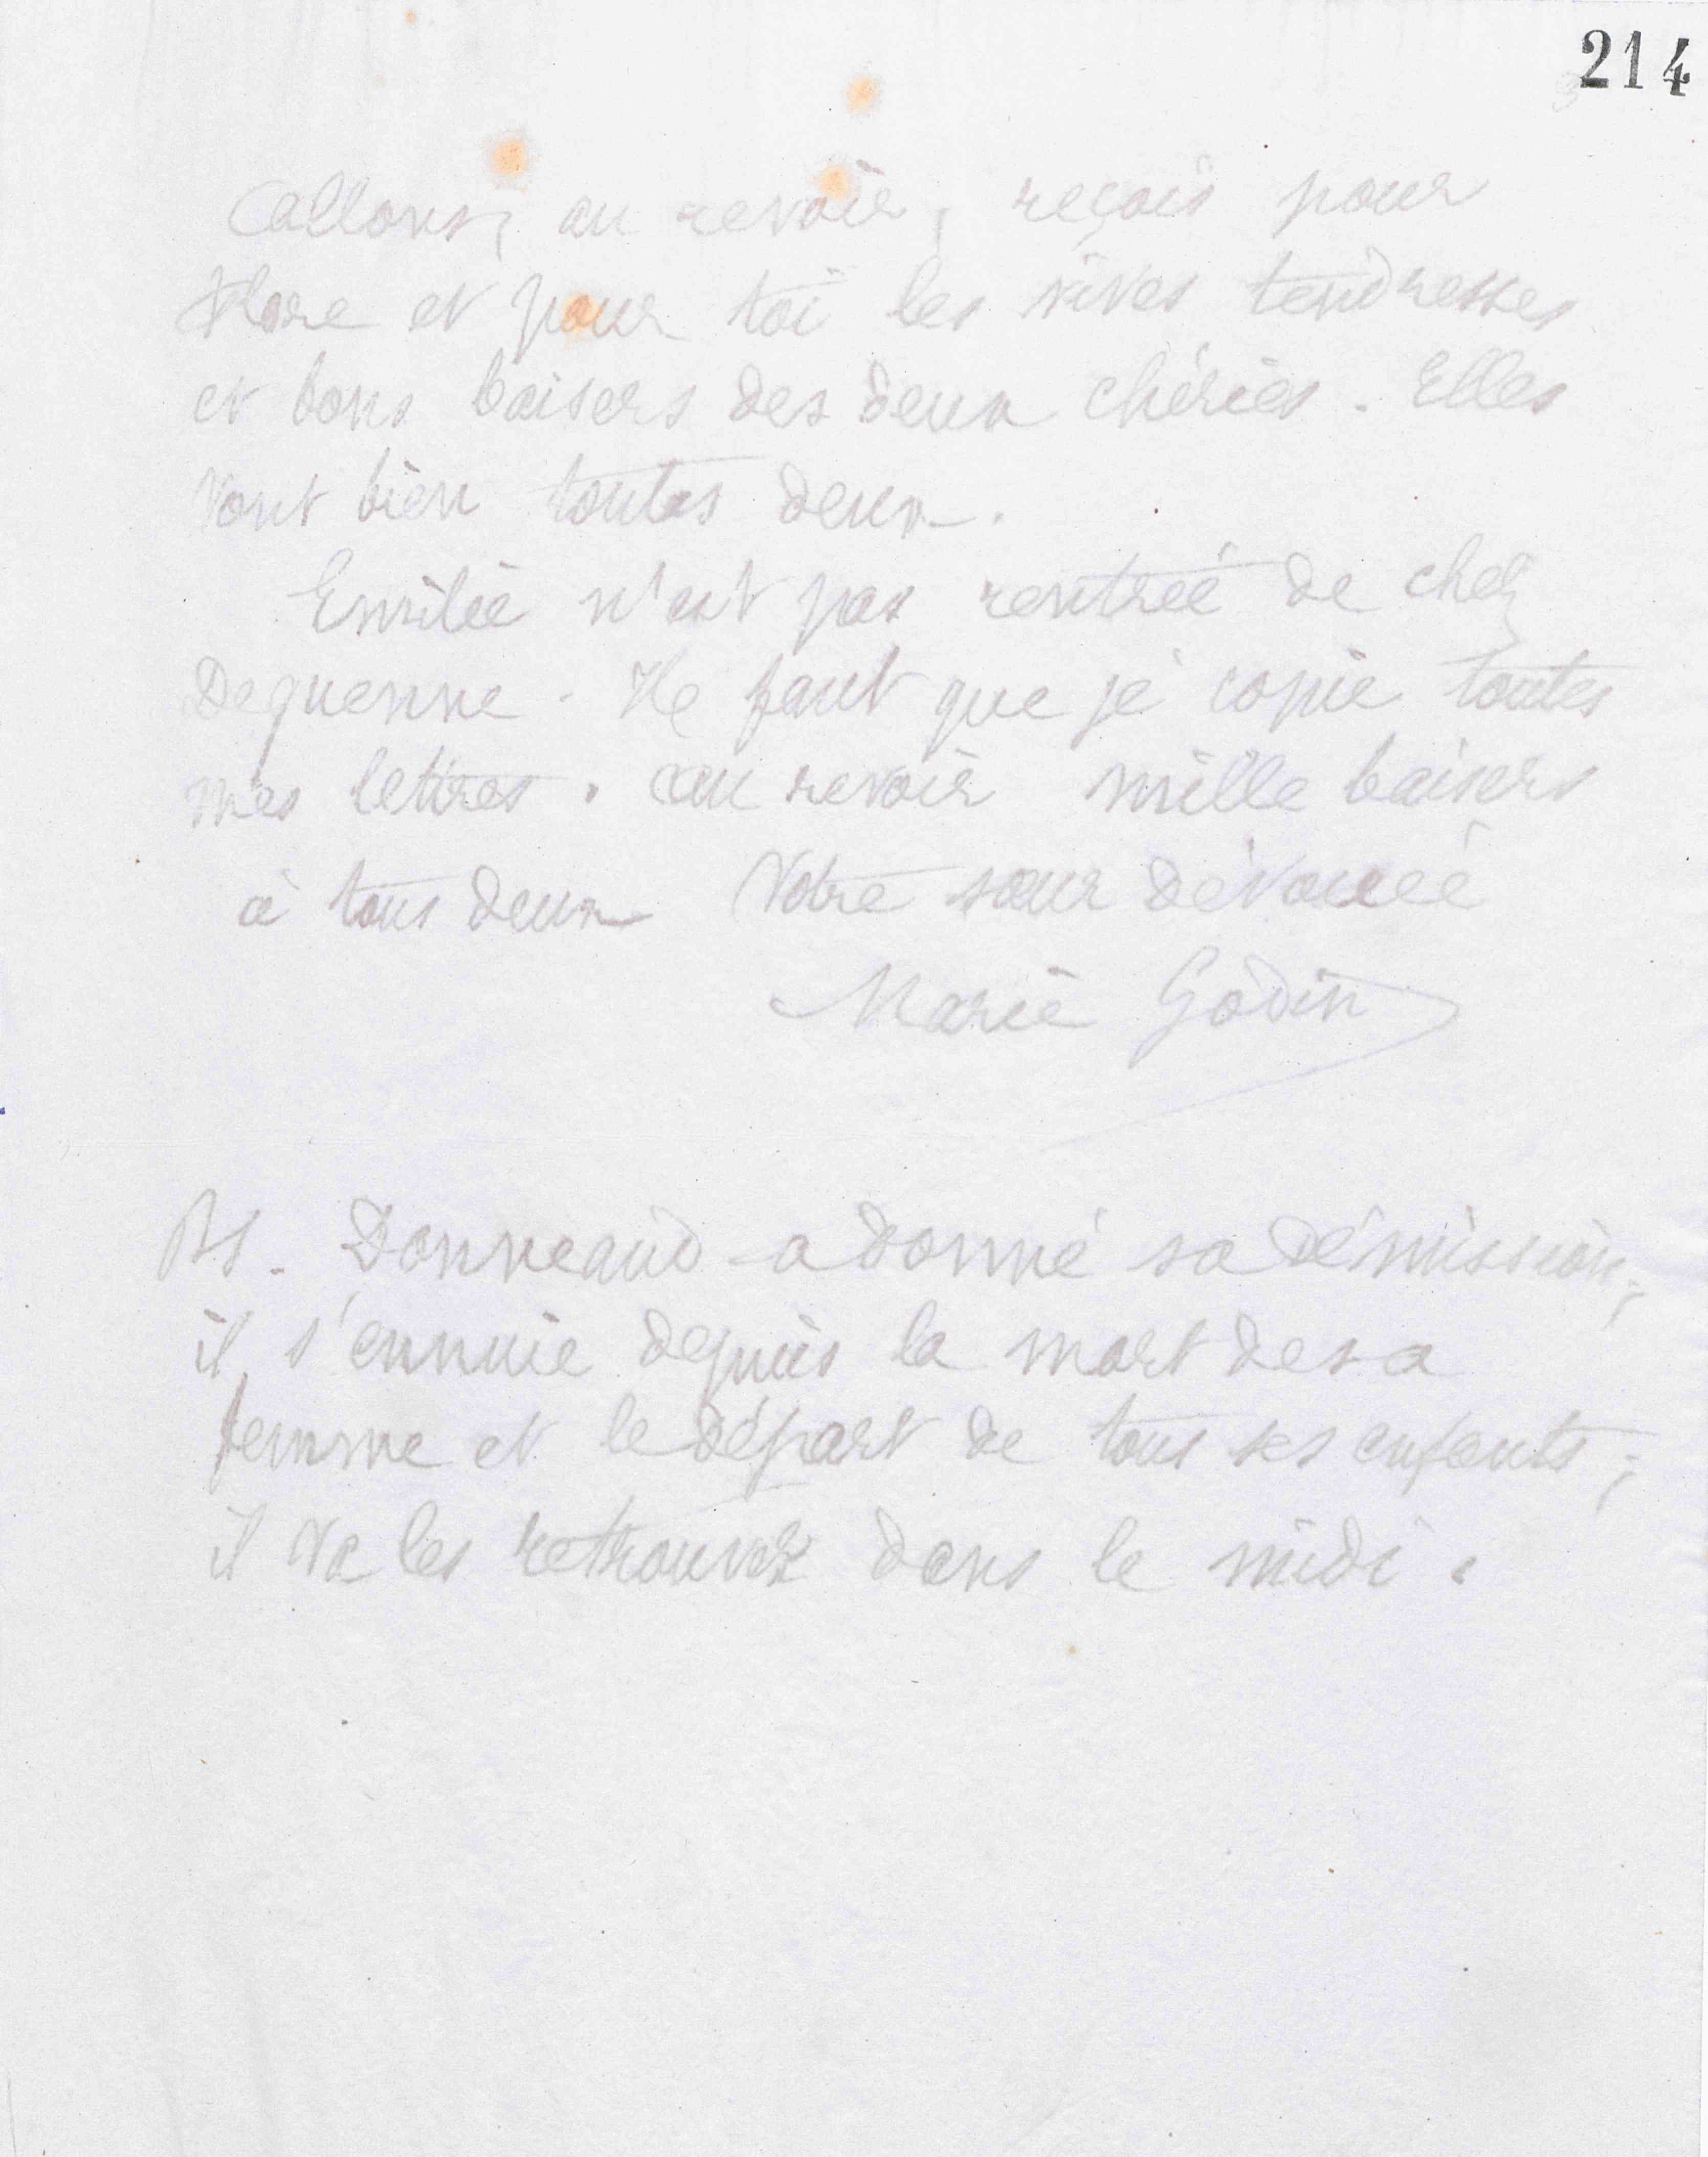 214
Allons, au revoir, reçois pour
Flore et pour toi les vives tendresses
et bons baisers des deux chéries. Elles
vont bien toutes deux.
Emilie n'est pas rentrée de chez
Dequenne. Il faut que je copie toutes
mes lettres. Au revoir mille baisers
à tous deux Votre sœur dévouée
Marie Godin
PS. Donneaud a donné sa démission;
il s'ennuie depuis la mort de sa
femme et le départ de tous ses enfants;
il va les retrouver dans le midi.